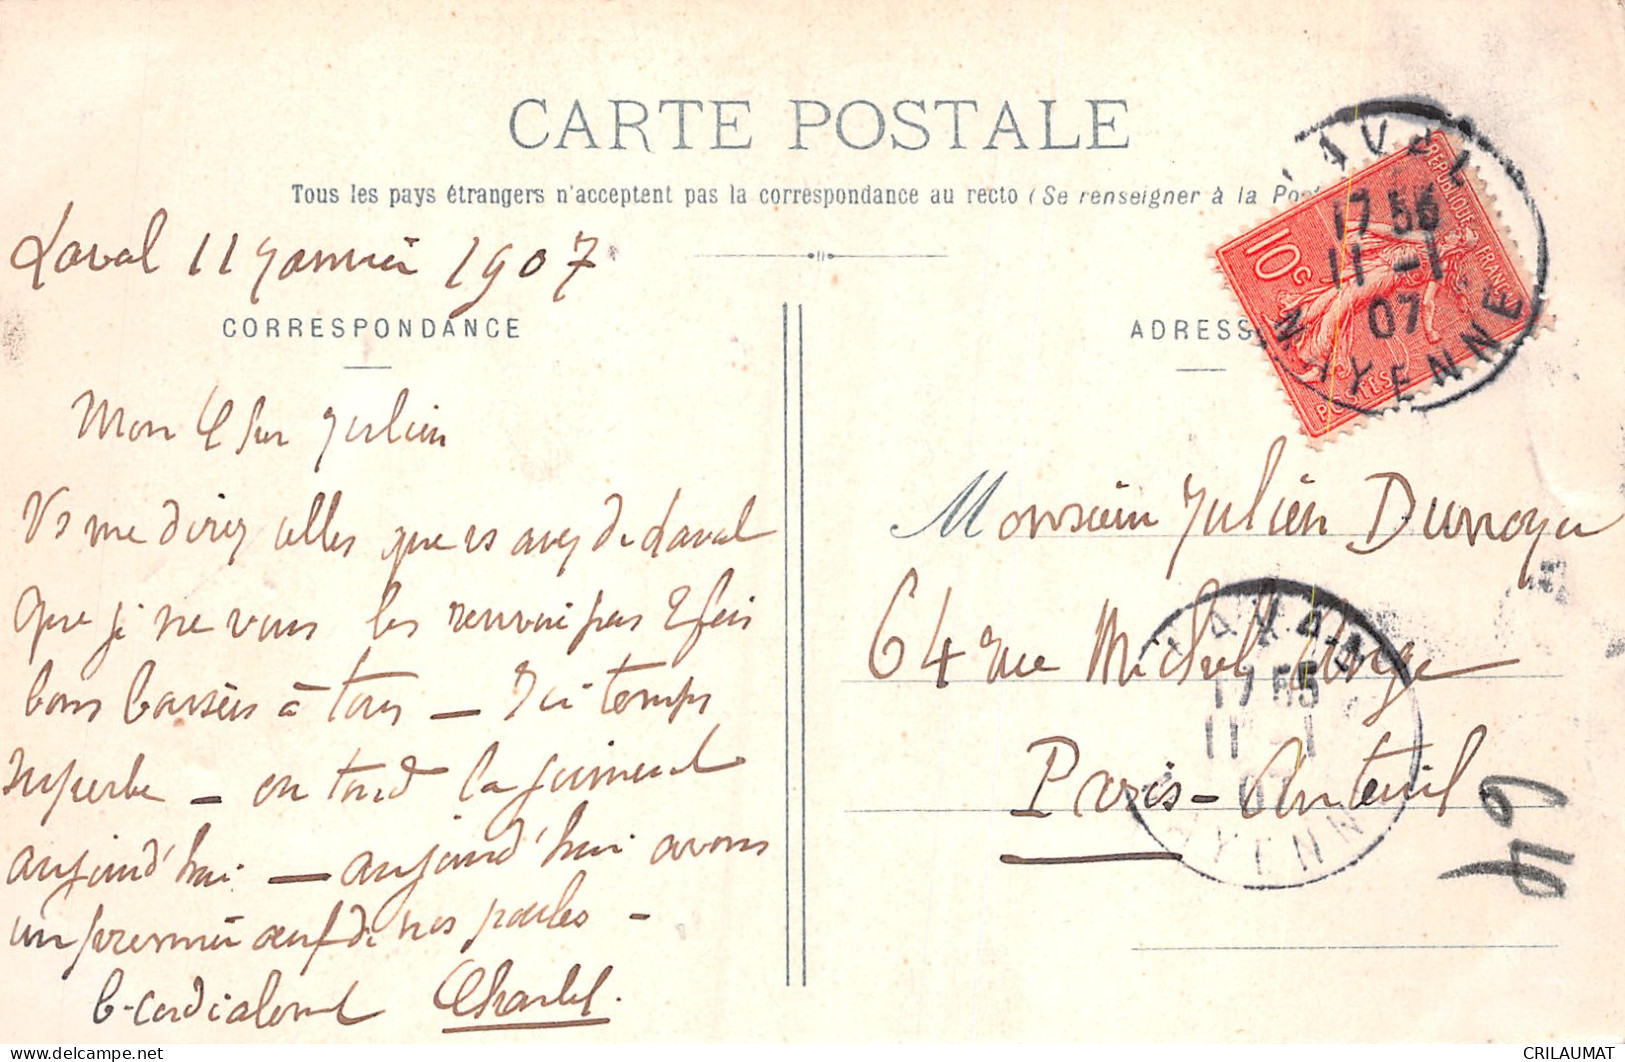 CARTE POSTALE
Tous les pays étrangers n'acceptent pas la correspondance au recto (Se renseigner à la Pos
Laval 11 Janvier 1907
CORRESPONDANCE
ADRESS
Mon Julien
Vs me direz celles que vs avez de Laval
Que je ne vous les renvoie pas 2 fois
bons baisers à tous — Ici temps
superbe — on tond la jument
aujourd'hui — aujourd'hui avons
un premier œuf de nos poules —
b-cordialement Charles.
REPUBLIQUE FRANÇAISE
10c
POSTES
LAVAL
17 56
11 -1
07
MAYENNE
Monsieur Julien Dunoyer
64 rue Michel Ange
Paris-Auteuil
LAVAL
17 55
11 -1
07
MAYENNE
49
www.delcampe.net
CRILAUMAT